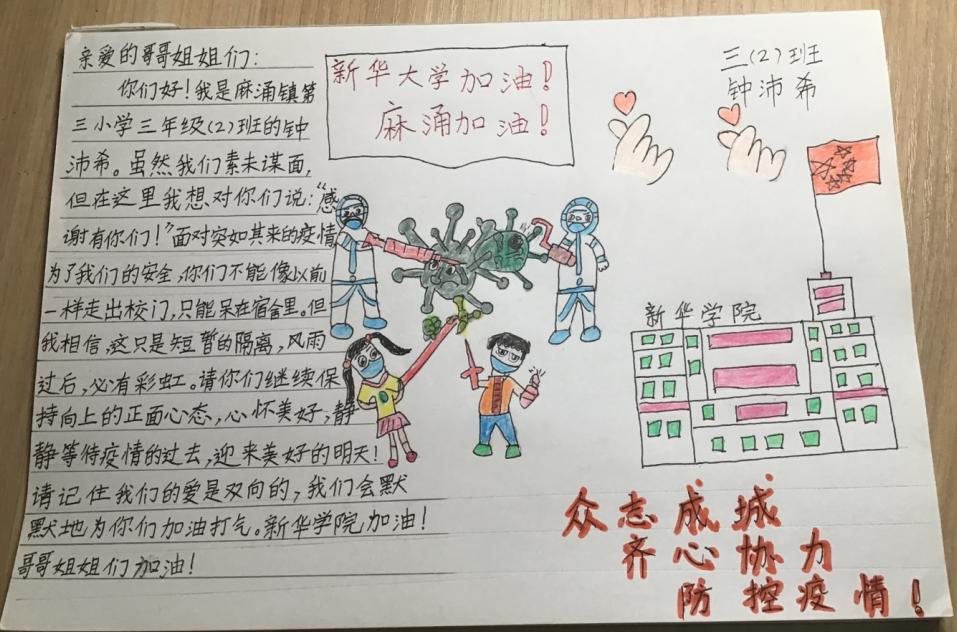 亲爱的哥哥姐姐们：
你们好！我是麻涌镇第
三小学三年级（2）班的钟
沛希。虽然我们素未谋面，
但在这里我想对你们说：“感
谢有你们！”面对突如其来的疫情
为了我们的安全，你们不能像以前
一样走出校门，只能呆在宿舍里。但
我相信，这只是短暂的隔离，风雨
过后，必有彩虹。请你们继续保
持向上的正面心态，心怀美好，静
静等待疫情的过去，迎来美好的明天！
请记住我们的爱是双向的，我们会默
默地为你们加油打气。新华学院加油！
哥哥姐姐们加油！
新华大学加油！
麻涌加油！
三（2）班
钟沛希
新华学院
众志成城
齐心协力
防控疫情！